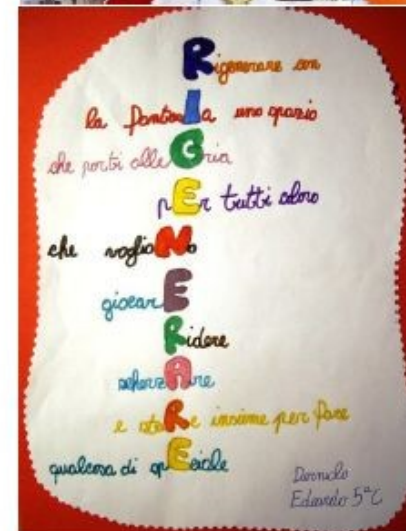 Rigenerare con
la fantasia uno spazio
che porti allegria
pEr tutti coloro
che voglioNo
giocarE
Ridere
scherzAre
e staRe insieme per fare
qualcosa di spEciale
Edoardo 5ªC